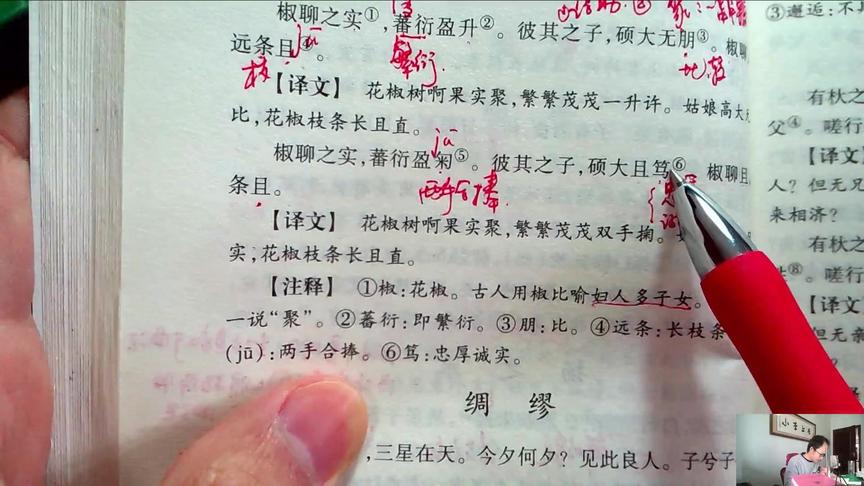 椒聊之实①,蕃衍盈升②。彼其之子,硕大无朋③。椒聊
远条且④。
繁衍
比
【译文】 花椒树啊果实聚,繁繁茂茂一升许。姑娘高大
比,花椒枝条长且直。
jū
椒聊之实,蕃衍盈匊⑤。彼其之子,硕大且笃⑥。椒聊且
条且。
两手合捧
【译文】 花椒树啊果实聚,繁繁茂茂双手掬。
实,花椒枝条长且直。
【注释】 ①椒:花椒。古人用椒比喻妇人多子女。
一说“聚”。②蕃衍:即繁衍。③朋:比。④远条:长枝条
(jū):两手合捧。⑥笃:忠厚诚实。
绸缪
,三星在天。今夕何夕?见此良人。子兮子
③邂逅:不
有杕之
父④。嗟行
【译文
人?但无兄
来相济?
有杕之
⑧。嗟行
【译文
但无亲